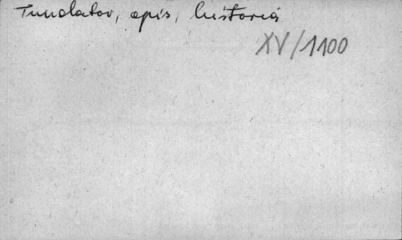 Fundátor, opis, história
XV/1100